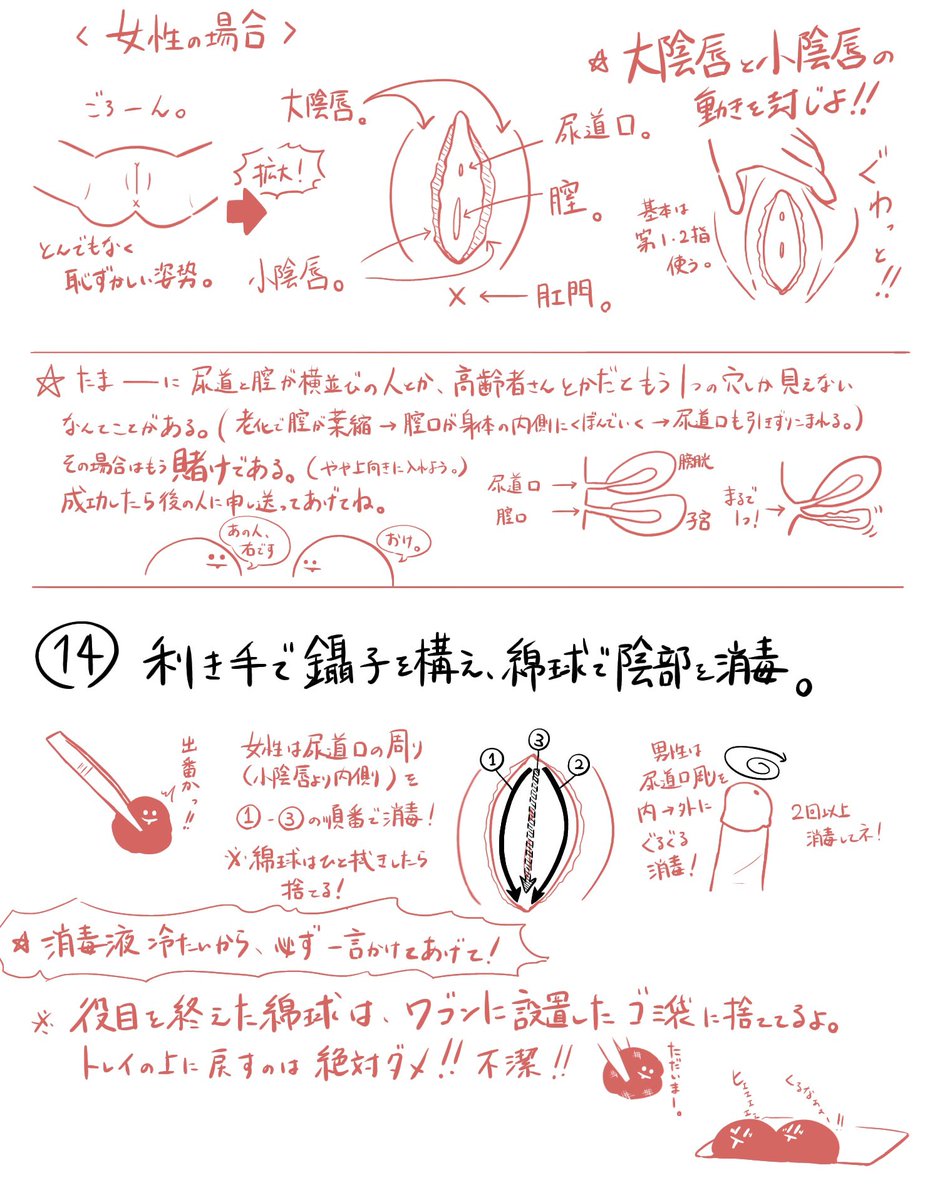 〈女性の場合〉
ごろーん。
とんでもなく
恥ずかしい姿勢。
拡大!
大陰唇。
小陰唇。
尿道口。
膣。
肛門。
☆大陰唇と小陰唇の
動きを封じよ!!
ぐわっと!!
基本は
第1・2指
使う。
☆たまーーに尿道と膣が横並びの人とか、高齢者さんとかだともう1つの穴しか見えない
なんてことがある。(老化で膣が萎縮→膣口が身体の内側にくぼんでいく→尿道口も引きずりこまれる。)
その場合はもう賭けである。(やや上向きに入れよう。)
成功したら後の人に申し送ってあげてね。
あの人、
右です
おけ。
尿道口→
膣口→
膀胱
子宮
まるで
1つ!
⑭利き手で鑷子を構え、綿球で陰部を消毒。
出番かっ!!
女性は尿道口の周り
(小陰唇より内側)を
①-③の順番で消毒!
※綿球はひと拭きしたら
捨てる!
①
③
②
男性は
尿道口周りを
内→外に
ぐるぐる
消毒!
2回以上
消毒してネ!
☆消毒液冷たいから、必ず一言かけてあげて!
※役目を終えた綿球は、ワゴンに設置したゴミ袋に捨ててるよ。
トレイの上に戻すのは絶対ダメ!!不潔!!
ただいまー。